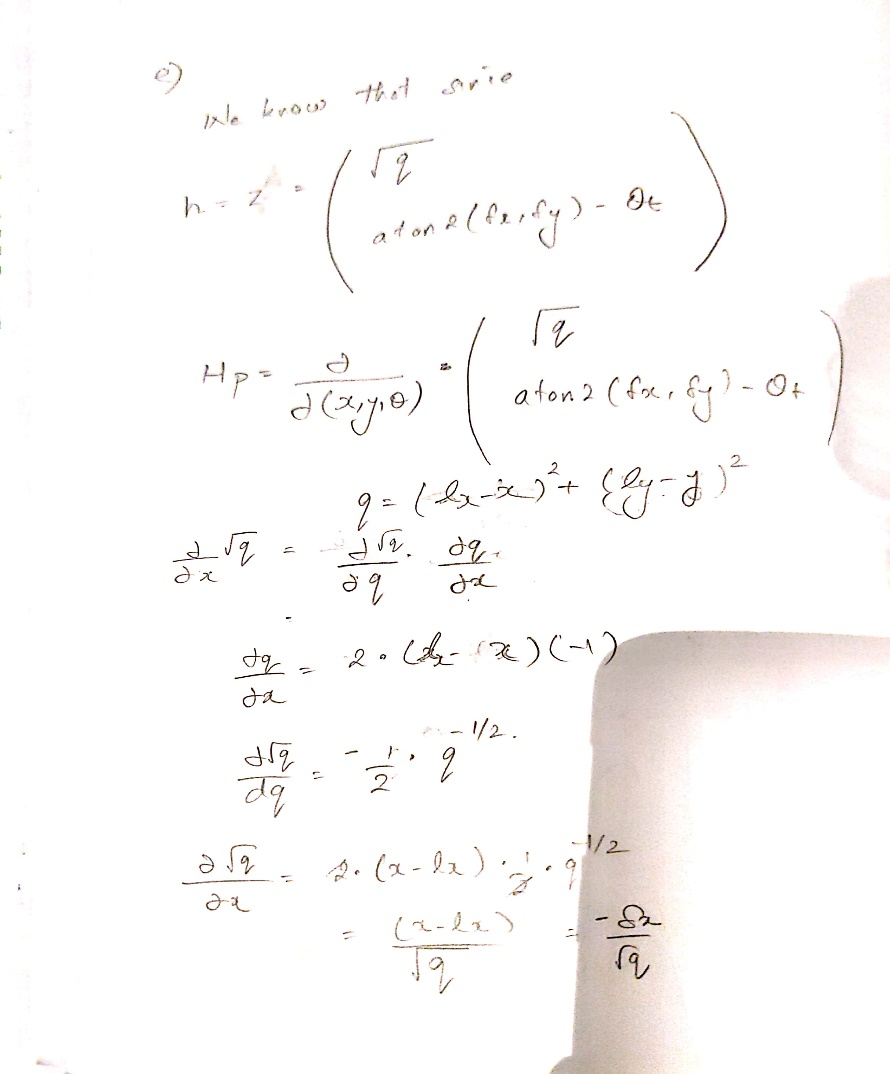 e)
We know that since
h = z = ( √q
atan2(δx, δy) - θt )
Hp = ∂ / ∂(x, y, θ) = ( √q
atan2(δx, δy) - θt )
q = (lx - x)² + (ly - y)²
∂/∂x √q = ∂√q/∂q . ∂q/∂x
∂q/∂x = 2 . (lx - x)(-1)
∂√q/dq = - 1/2 . q^-1/2.
∂√q/∂x = 2. (x - lx) . 1/2 . q^-1/2
= (x - lx)/√q = -δx/√q